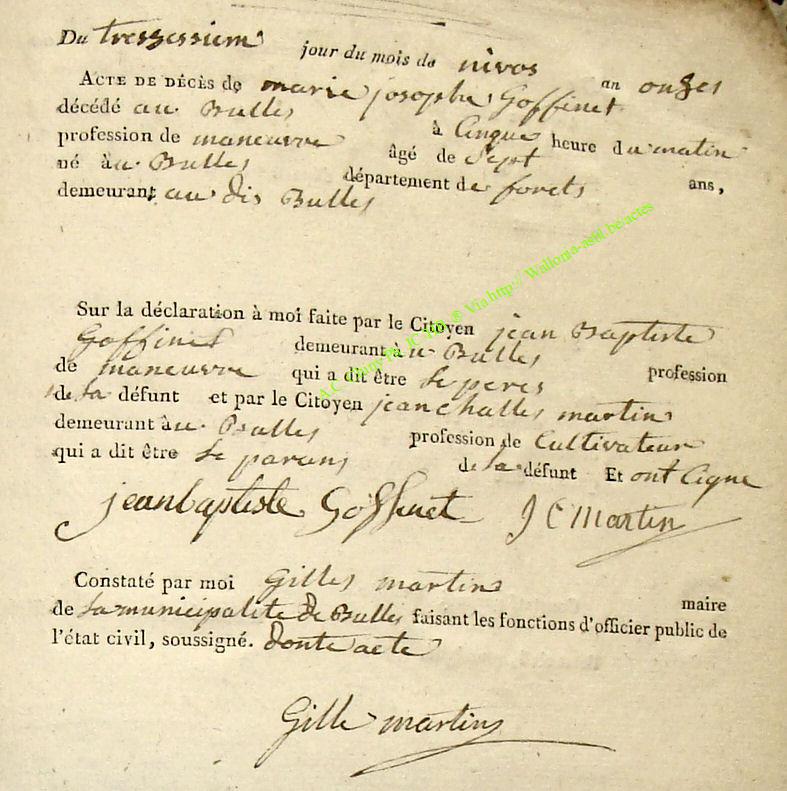 Du treszessiem jour du mois de nivos an onzes
ACTE DE DÉCÈS de marie josophe Goffinet
décédé au Bulles à Cinque heure du matin
profession de maneuvre âgé de Sept ans,
né àu Bulles département de forets
demeurant au dis Bulles
Sur la déclaration à moi faite par le Citoyen jean Baptiste
Goffinet demeurant àu Bulles profession
de maneuvre qui a dit être le peres
de la défunt et par le Citoyen jean challes martin
demeurant àu Bulles profession de Cultivateur
qui a dit être le parans de la défunt Et ont Cigne
jeanbaptiste Goffinet J C Martin
Constaté par moi Gilles martin maire
de la municipalite de Bulles faisant les fonctions d'officier public de
l'état civil, soussigné. donte acte
Gille martin
® Via http:// Wallonia-asbl.be/actes